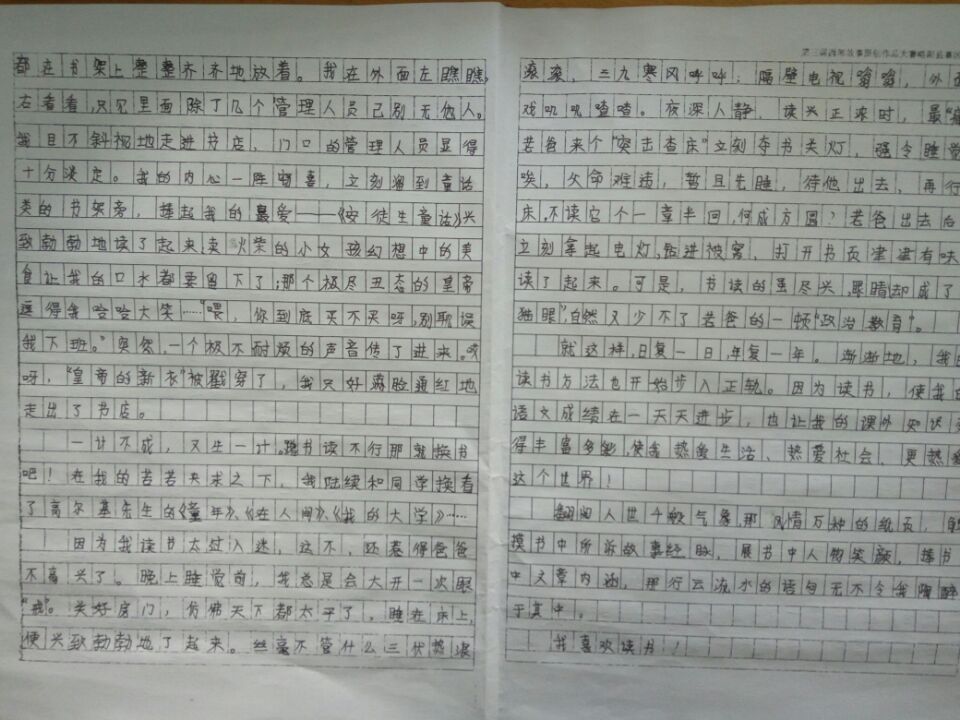 都在书架上整整齐齐地放着。我在外面左瞧瞧,
右看看,只见里面除了几个管理人员已别无他人。
我目不斜视地走进书店,门口的管理人员显得
十分淡定。我的内心一阵窃喜,立刻溜到童话
类的书架旁,捧起我的最爱——《安徒生童话》兴
致勃勃地读了起来,卖火柴的小女孩幻想中的美
食让我的口水都要留下了;那个极尽丑态的皇帝
逗得我哈哈大笑……“喂,你到底买不买呀,别耽误
我下班。”突然,一个极不耐烦的声音传了进来。哎
呀,“皇帝的新衣”被戳穿了,我只好满脸通红地
走出了书店。
一计不成,又生一计。蹭书读不行那就换书
吧!在我的苦苦央求之下,我陆续和同学换看
了高尔基先生的《童年》、《在人间》、《我的大学》……
因为我读书太过入迷,这不,还惹得爸爸
不高兴了。晚上睡觉前,我总是会大开一次眼
“戒”。关好房门,仿佛天下都太平了,睡在床上,
便兴致勃勃地了起来。丝毫不管什么三伏热浪
第三届西部故事原创作品大赛
滚滚,三九寒风呼呼;隔壁电视嗡嗡,外面
戏叽叽喳喳。夜深人静,读兴正浓时,最“痛
若爸来个“突击查床”立刻夺书关灯,强令睡觉
唉,父命难违,暂且先睡,待他出去、再行
床,不读它个一章半回,何成方圆?若爸出去后
立刻拿起电灯,钻进被窝,打开书页津津有味
读了起来。可是,书读的虽尽兴,眼睛却成了
独眼”,自然又少不了老爸的一顿“政治教育”。
就这样,日复一日,年复一年。渐渐地,我的
读书方法也开始步入正轨。因为读书,使我的
语文成绩在一天天进步,也让我的课外知识变
得丰富多彩,使我热爱生活、热爱社会、更热爱
这个世界!
翻阅人世千般气象,那风情万种的纸页,
摸书中所诉故事经脉,展书中人物笑颜,捧书
中文章内涵,那行云流水的语句无不令我陶醉
于其中。
我喜欢读书!